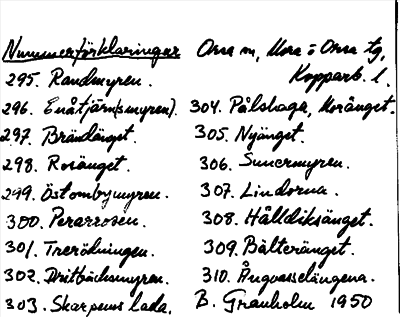 Nummerförklaringar Orsa sn, Mora o Orsa tg,
Kopparb. l.
295. Randmyren.
296. Enåtjärn(smyren).
297. Brändänget.
298. Rosänget.
299. Östombymyren.
300. Perarrosen.
301. Treriksningen.
302. Dritbäcksmyren.
303. Skarpens lada.
304. Pålshaga, Moränget.
305. Nyänget.
306. Sunermyren.
307. Lindorna.
308. Hålldiksänget.
309. Bälteränget.
310. Ångvasselängena.
B. Granholm 1950